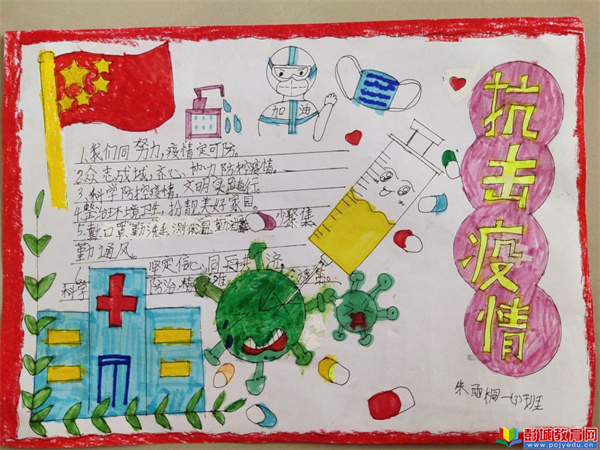 抗击疫情
加油
1.我们同努力,疫情定可防。
2.众志成城,齐心协力防控疫情。
3.科学防控疫情,文明实践
4.整治环境卫生,扮靓美好家园。
5.戴口罩勤洗手测体温勤 少聚集
勤通风。
6. 坚定信心,同
科学 防治,精
朱雨桐一 班
彭城教育网
www.pcjyedu.cn